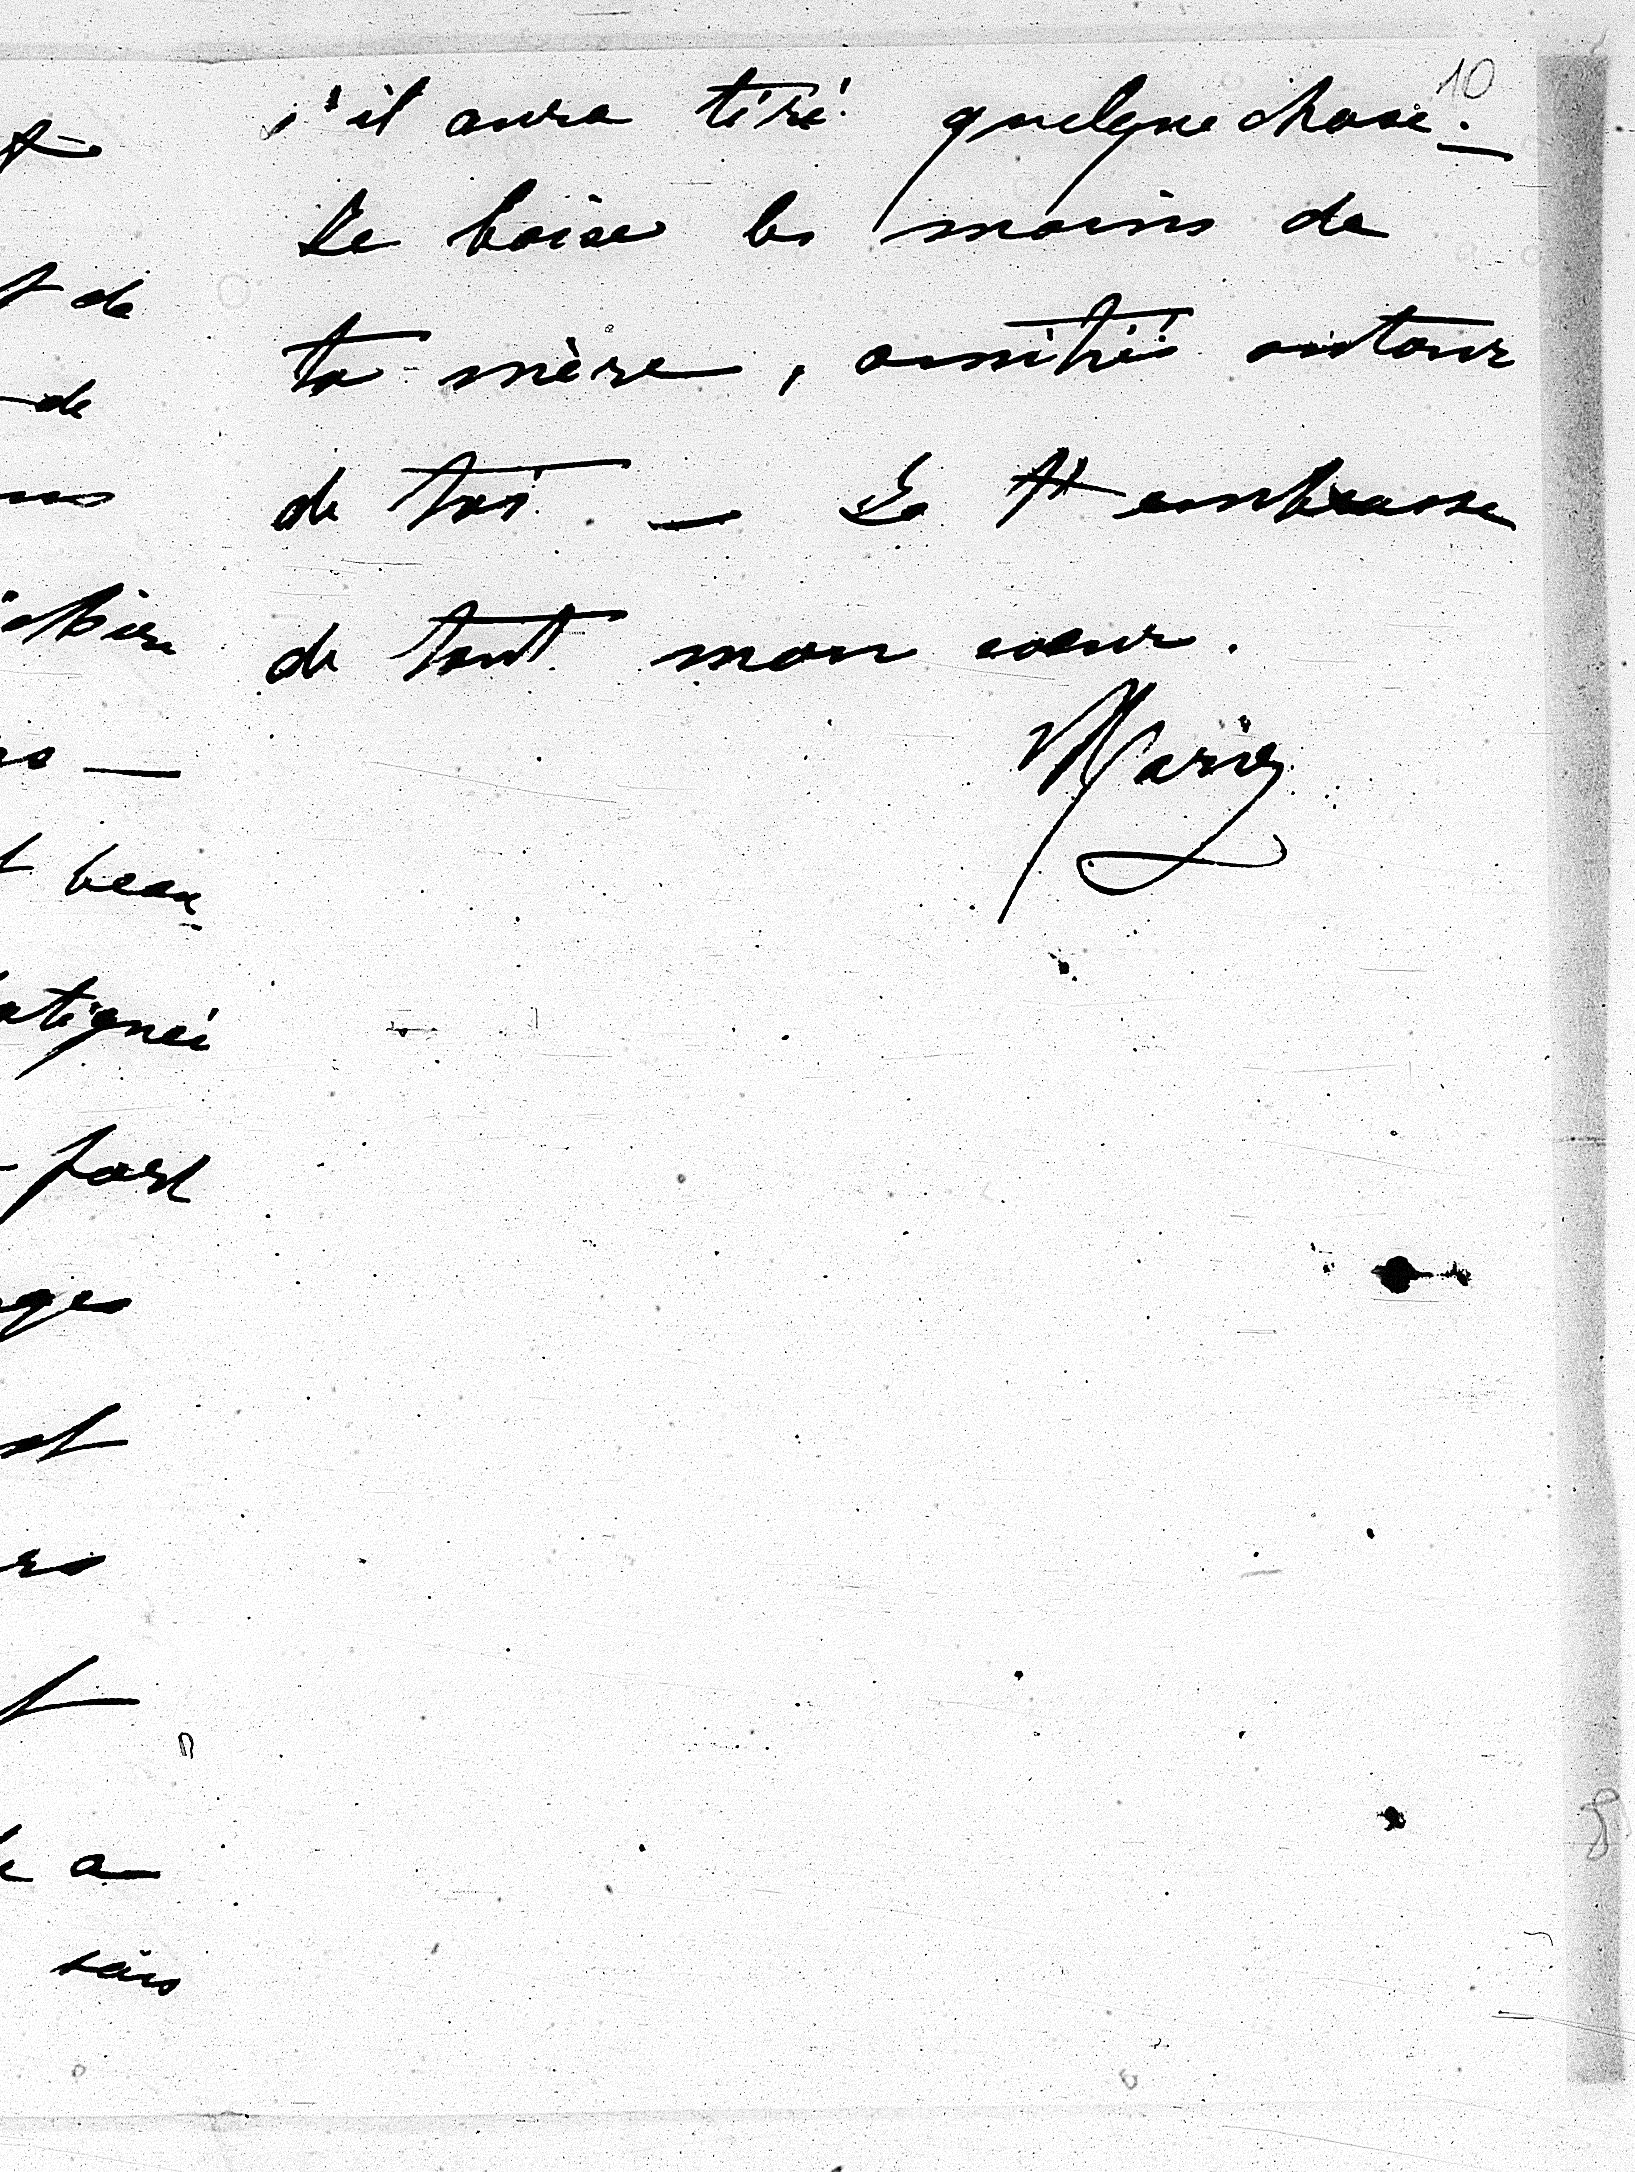 10
s'il aura tiré quelque chose. —
Je baise les mains de
ta mère, amitiés autour
de toi — Je t'embrasse
de tout mon cœur.
Marie
t de
de
bien
beau-
fatiguée
part
et
a
sais